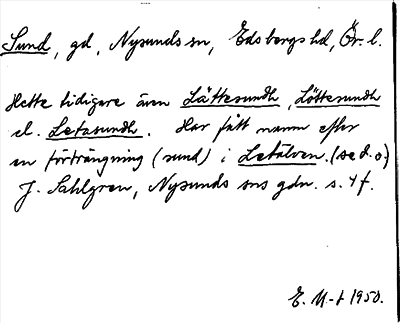 Sund, gd, Nysunds sn, Edsbergs hd, Ör. l.
Hette tidigare även Lättesundh, Löttesundh
el. Letasundh. Har fått namn efter
en förträngning (sund) i Letälven. (se d. o.)
J. Sahlgren, Nysunds sns gdn. s. 4 f.
E. M-t 1950.